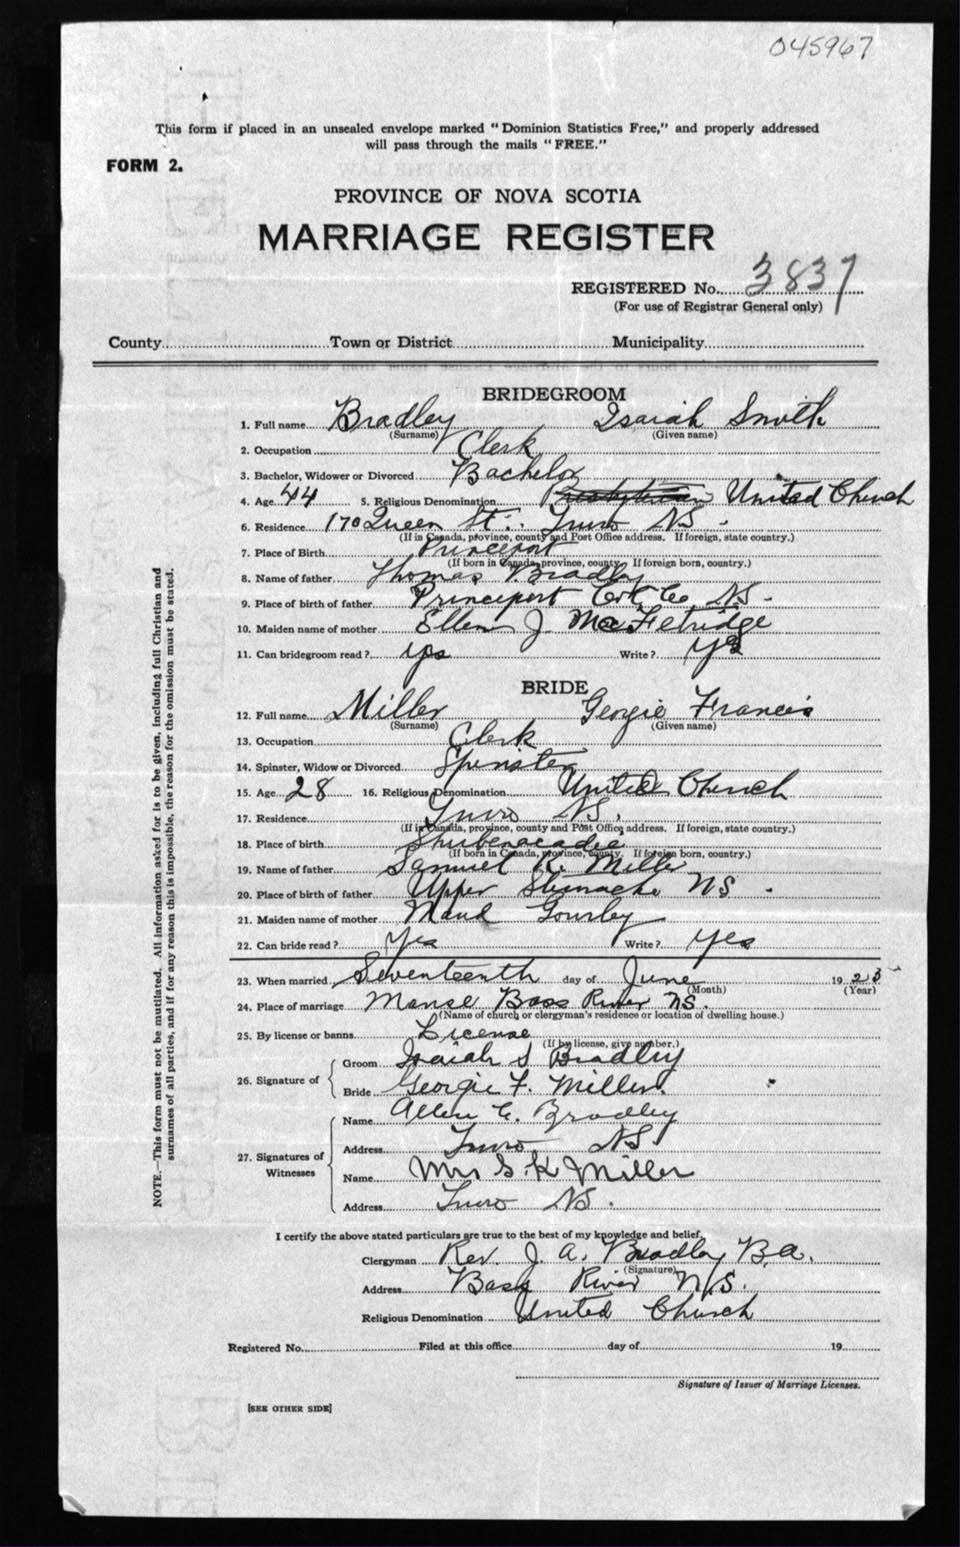 045967
This form if placed in an unsealed envelope marked "Dominion Statistics Free," and properly addressed
will pass through the mails "FREE."
FORM 2.
PROVINCE OF NOVA SCOTIA
MARRIAGE REGISTER
REGISTERED No. 3837
(For use of Registrar General only)
County Town or District Municipality
BRIDEGROOM
1. Full name Bradley Isaiah Smith
(Surname) (Given name)
2. Occupation Clerk
3. Bachelor, Widower or Divorced Bachelor
4. Age 44 5. Religious Denomination Presbyterian United Church
6. Residence 170 Queen St. Truro NS.
(If in Canada, province, county and Post Office address. If foreign, state country.)
7. Place of Birth Princeport
(If born in Canada, province, county. If foreign born, country.)
8. Name of father Thomas Bradley
9. Place of birth of father Princeport Col. Co NS.
10. Maiden name of mother Ellen J. MacFetridge
11. Can bridegroom read? yes Write? yes
BRIDE
12. Full name Miller Georgie Francis
(Surname) (Given name)
13. Occupation Clerk
14. Spinster, Widow or Divorced Spinster
15. Age 28 16. Religious Denomination United Church
17. Residence Truro NS.
(If in Canada, province, county and Post Office address. If foreign, state country.)
18. Place of birth Shubenacadie
(If born in Canada, province, county. If foreign born, country.)
19. Name of father Samuel K. Miller
20. Place of birth of father Upper Stewiacke NS.
21. Maiden name of mother Maud Gourley
22. Can bride read? Yes Write? yes
23. When married Seventeenth day of June 19
(Month) (Year)
24. Place of marriage Manse Bass River NS.
(Name of church or clergyman's residence or location of dwelling house.)
25. By license or banns License
(If by license, give number.)
26. Signature of Groom Isaiah S Bradley
Bride Georgie F. Miller.
27. Signatures of Witnesses Name Allen E. Bradley
Address Truro NS
Name Mrs S. K Miller
Address Truro NS.
I certify the above stated particulars are true to the best of my knowledge and belief.
Clergyman Rev. J. A. Bradley B.A.
(Signature)
Address Bass River N.S.
Religious Denomination United Church
Registered No. Filed at this office day of 19
Signature of Issuer of Marriage Licenses.
[SEE OTHER SIDE]
NOTE.—This form must not be mutilated. All information asked for is to be given, including full Christian and
surnames of all parties, and if for any reason this is impossible, the reason for the omission must be stated.